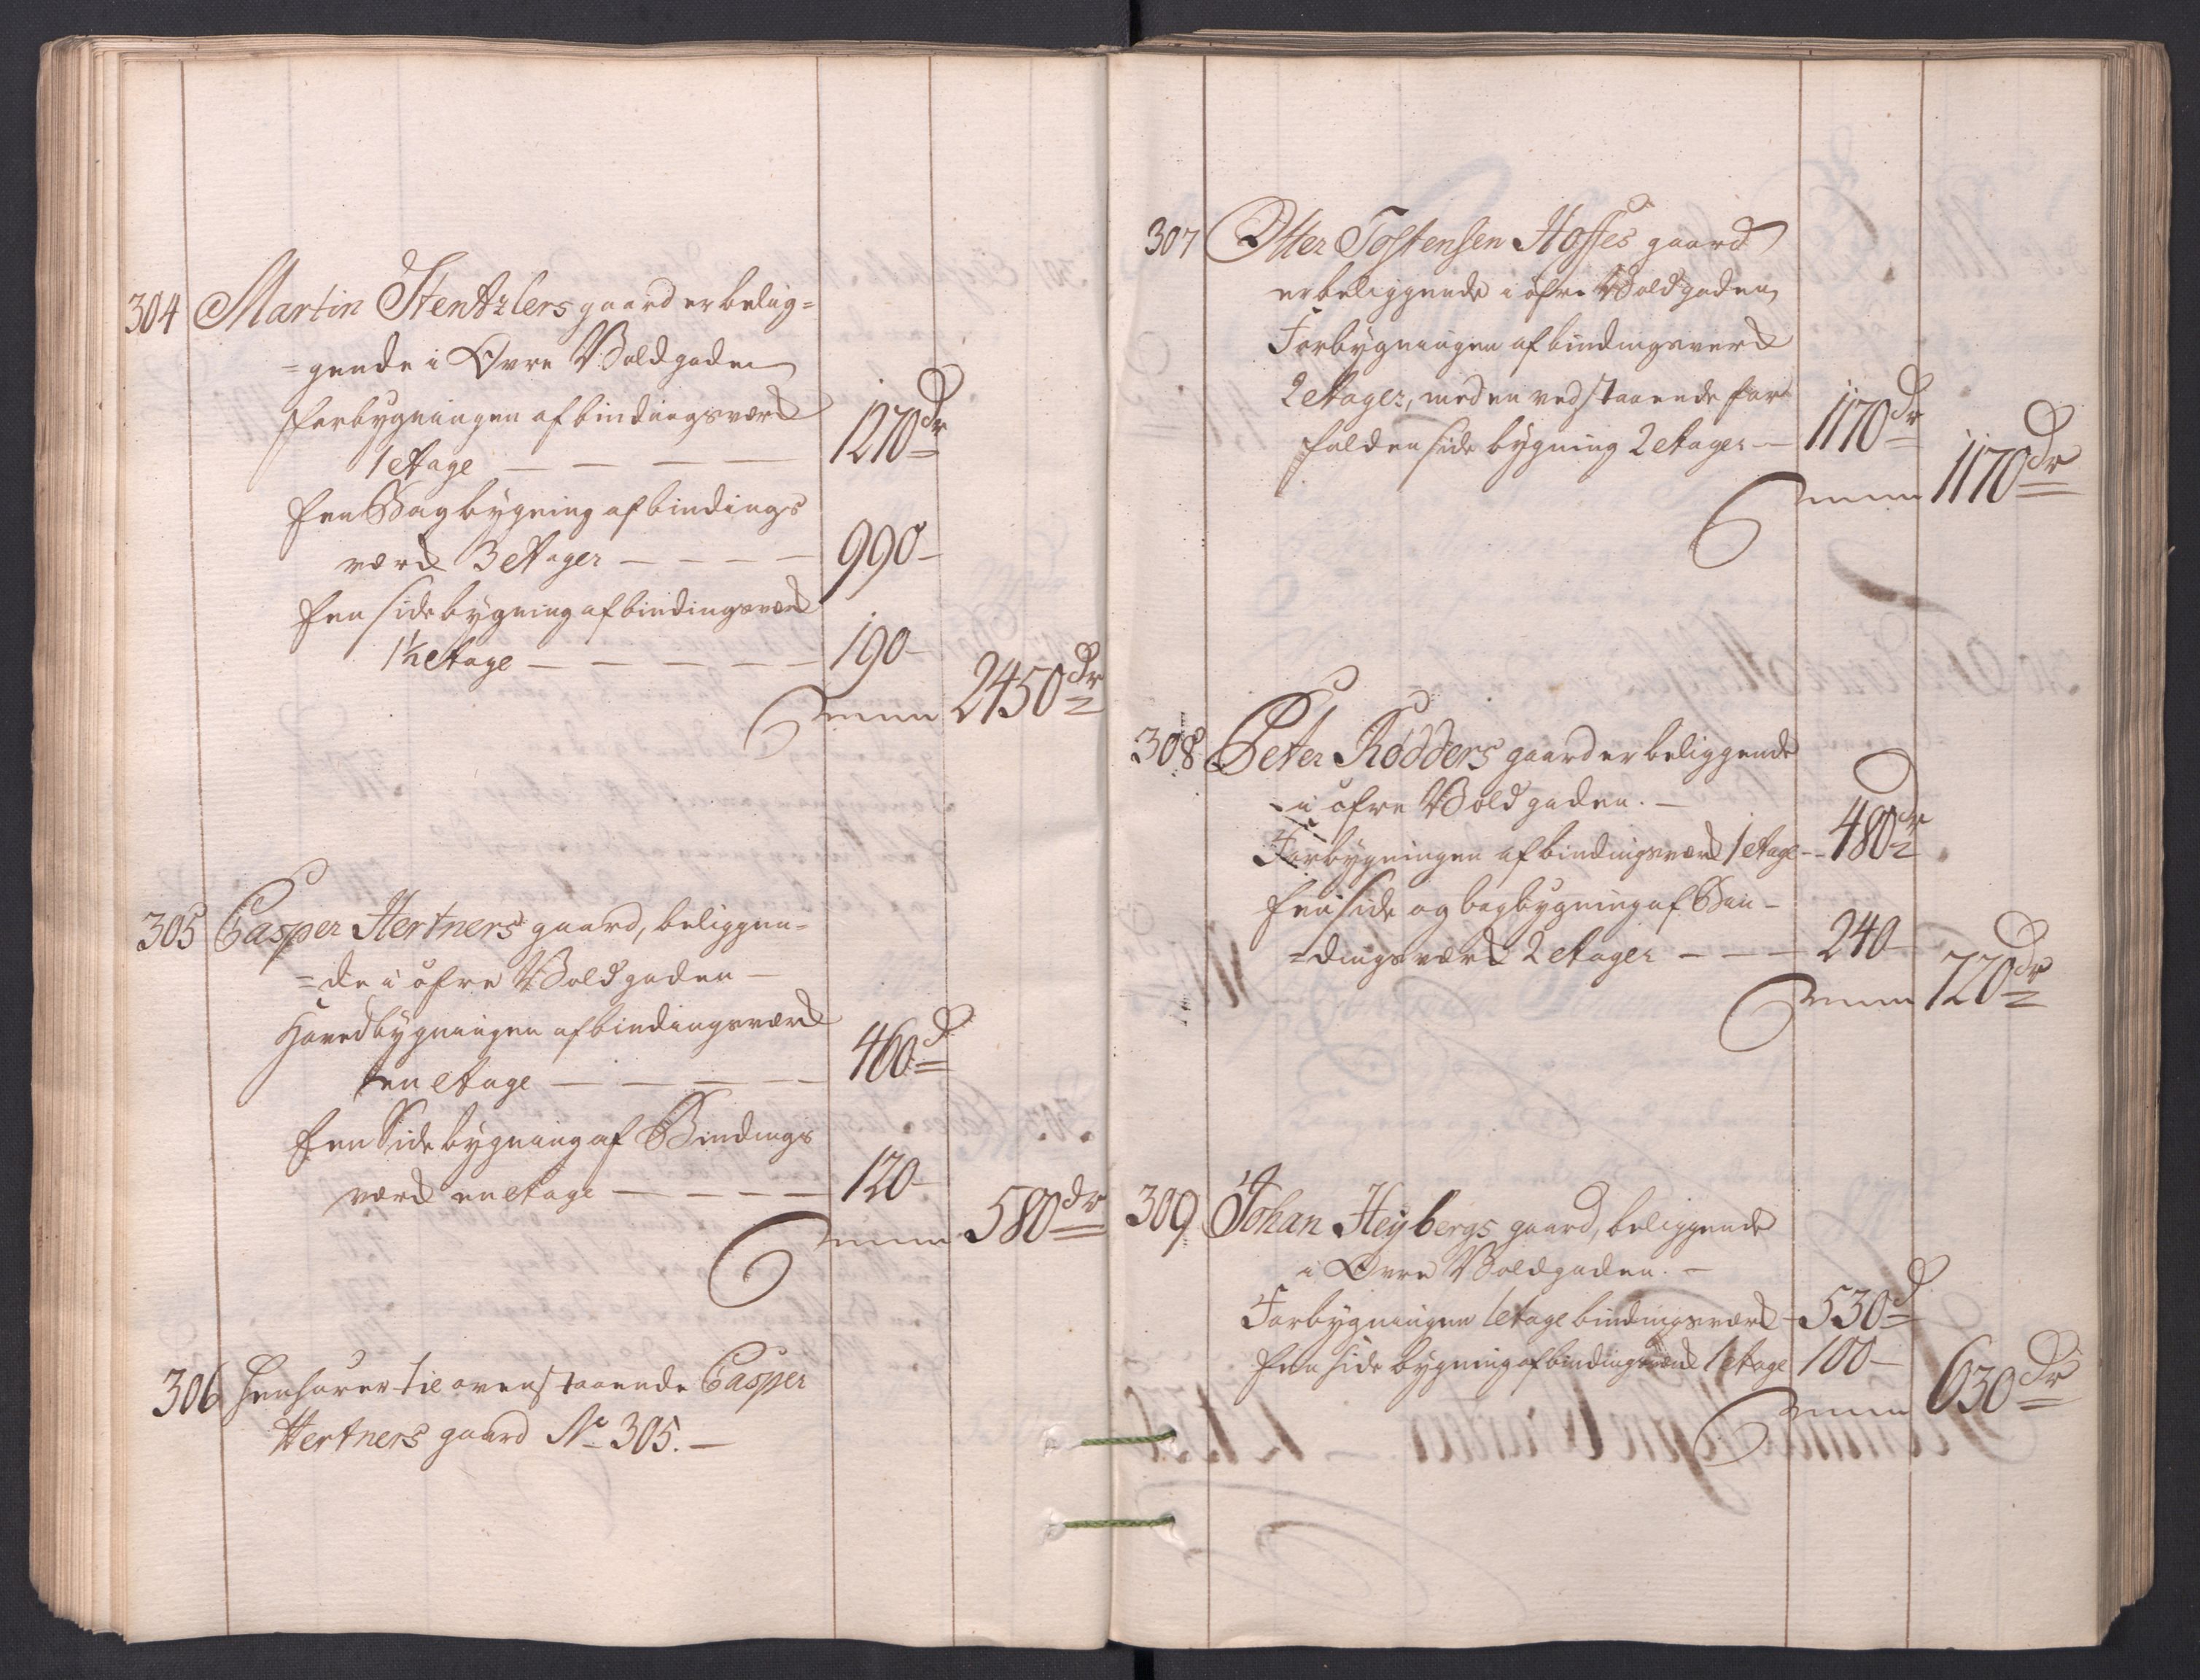 304 Martin Stentzlers gaard er belig=
=gende i Øvre Voldgaden
Forbygningen af bindingsværk
1 etage — — — — 1270 dr
Een Bagbygning af bindings
værk 3 etager — — — — 990 —
Een sidebygning af bindingsværk
1½ etage — — — — — 190 —
Summa 2450 dr
305 Casper Hertners gaard, beliggen=
=de i øfre Voldgaden —
Hovedbygningen af bindingsværk
een etage — — — — — 460 d
Een Sidebygning af Bindings
værk en etage — — — — 120 —
Summa 580 dr
306 Henhører til ovenstaaende Casper
Hertners gaard No 305. —
307 Otter Tostensen Hoffes gaard
er beliggende i øfre Voldgaden
Forbygningen af bindingsverk
2 etager, med en vedstaaende for
falden side bygning 2 etager — 1170 dr
Summa 1170 dr
308 Peter Rødders gaard er beliggende
i øfre Voldgaden. —
Forbygningen af bindingsværk 1 etage — 480 dr
Een side og bagbygning af Bin-
=dingsværk 2 etager — — — 240 —
Summa 720 dr
309 Johan Heybergs gaard, beliggende
i Øvre Voldgaden. —
Forbygningen 1 etage bindingsværk — 530 d
Een side bygning af bindingsværk 1 etage 100 —
Summa 630 dr